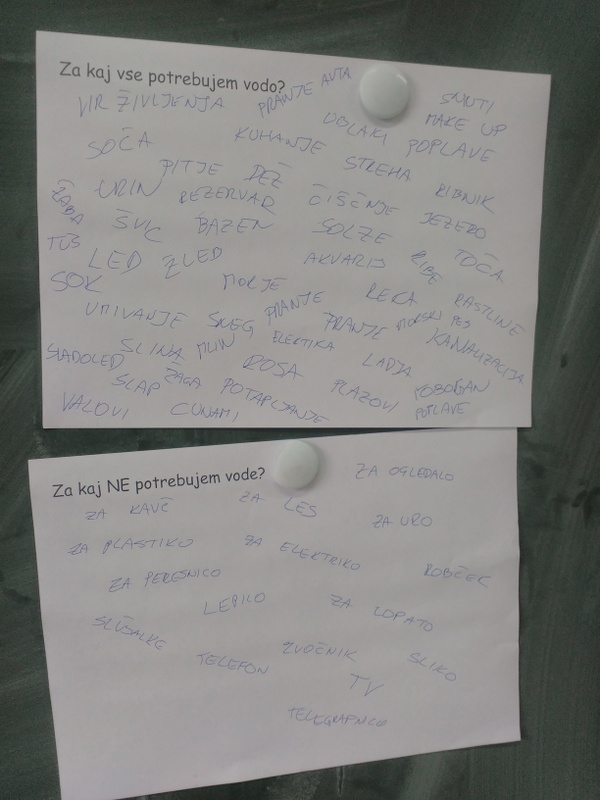 Za kaj vse potrebujem vodo?
PRANJE AVTA
VIR ŽIVLJENJA
SMUTI
MAKE UP
OBLAKI
POPLAVE
SOČA
KUHANJE
STREHA
PITJE
DEŽ
RIBNIK
ŽABA
URIN
REZERVAR
ČIŠČENJE
JEZERO
ŠVIC
BAZEN
SOLZE
TUŠ
LED
ŽLED
AKVARIJ
RIBE
TOČA
SOK
MORJE
PRANJE
REKA
RASTLINE
UMIVANJE
SNEG
PRANJE
MORSKI PES
KANALIZACIJA
SLADOLED
SLINA
MLIN
ELEKTIKA
ROSA
LADJA
SLAP
ŽAGA
POTAPLJANJE
PLAZOVI
TOBOGAN
POPLAVE
VALOVI
CUNAMI
Za kaj NE potrebujem vode?
ZA OGLEDALO
ZA KAVČ
ZA LES
ZA URO
ZA PLASTIKO
ZA ELEKTRIKO
ROBČEK
ZA PERESNICO
LEPILO
ZA LOPATO
SLUŠALKE
ZVOČNIK
SLIKO
TELEFON
TV